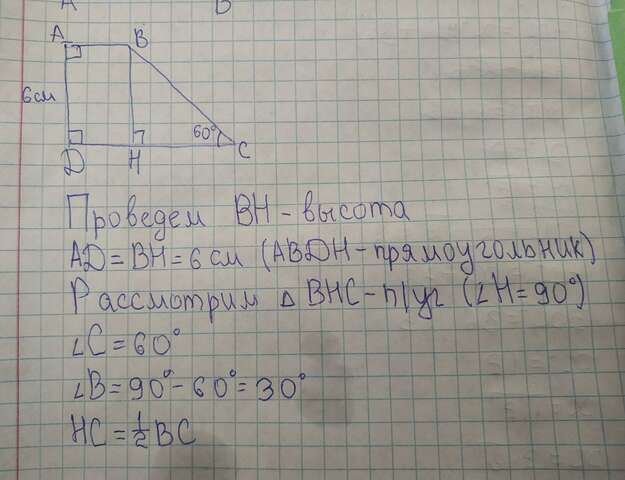 A B
A B
6см
60°
D H C
Проведем BH - высота
AD = BH = 6 см (ABDH - прямоугольник)
Рассмотрим △ BHC - п/уг (∠H = 90°)
∠C = 60°
∠B = 90° - 60° = 30°
HC = ½ BC